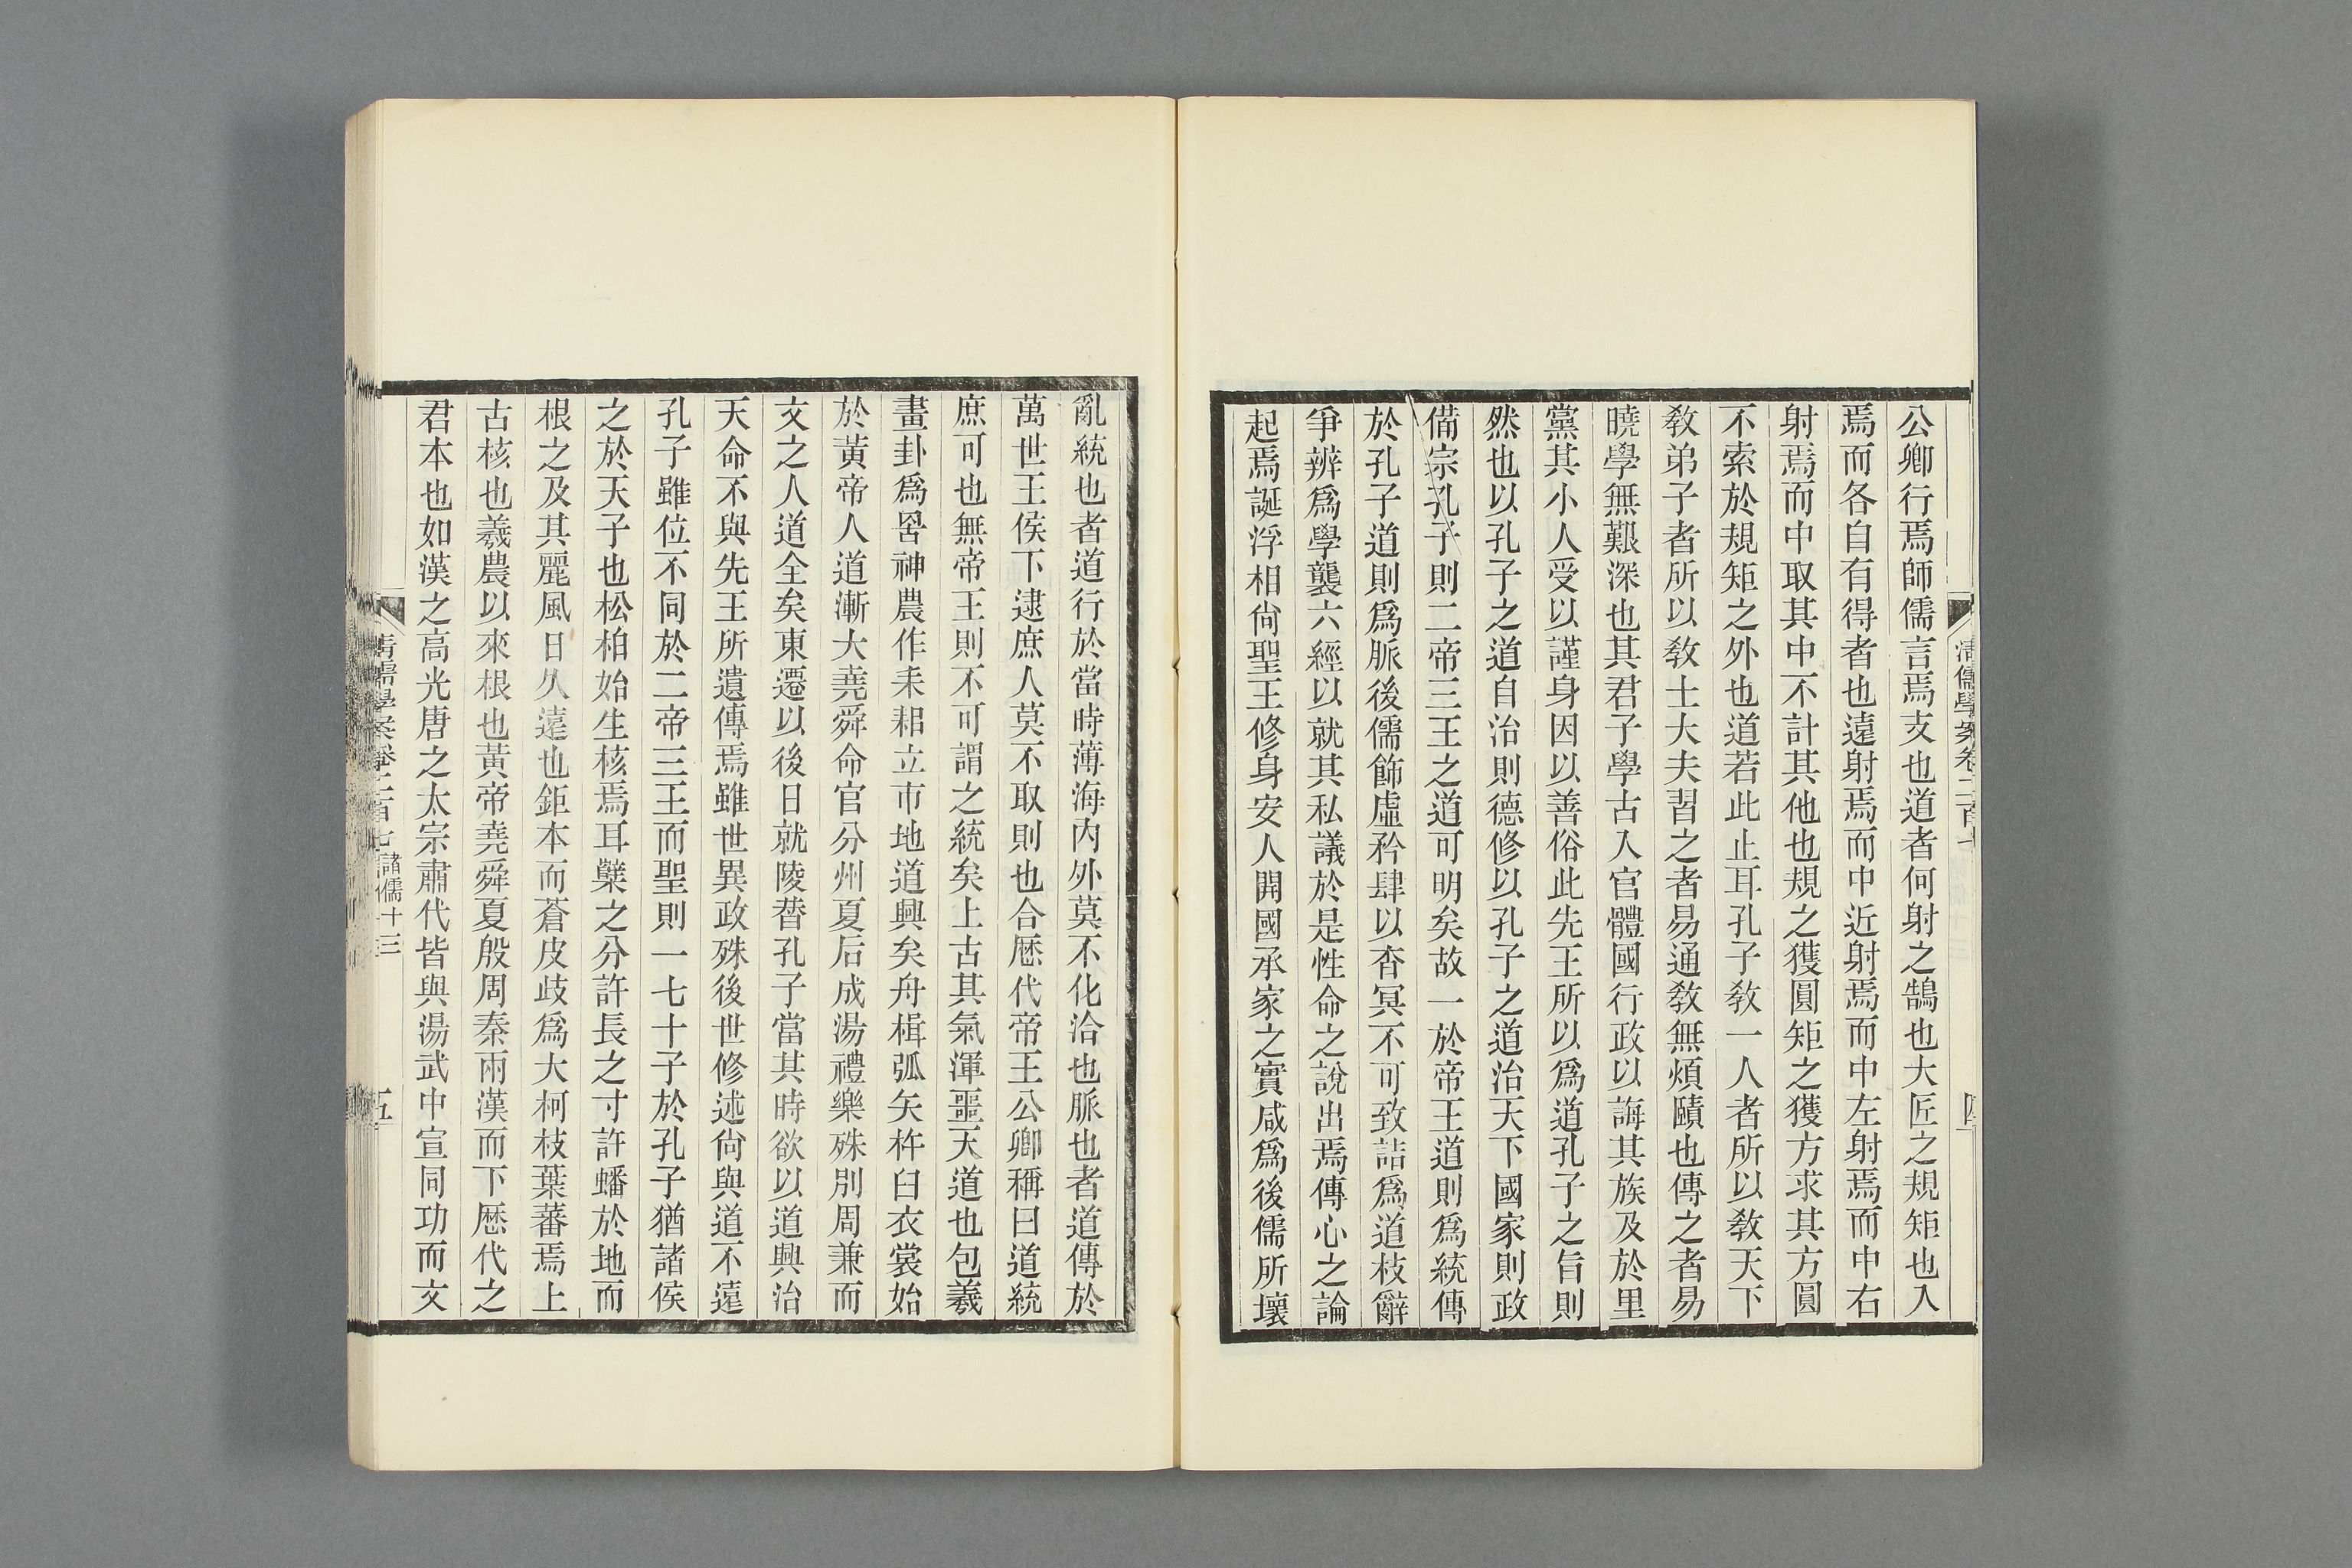 清儒學案卷二百七
四
公卿行焉師儒言焉支也道者何射之鵠也大匠之規矩也入
焉而各自有得者也遠射焉而中近射焉而中左射焉而中右
射焉而中取其中不計其他也規之獲圓矩之獲方求其方圓
不索於規矩之外也道若此止耳孔子敎一人者所以敎天下
敎弟子者所以敎士大夫習之者易通敎無煩賾也傳之者易
曉學無艱深也其君子學古入官體國行政以誨其族及於里
黨其小人受以謹身因以善俗此先王所以爲道孔子之旨則
然也以孔子之道自治則德修以孔子之道治天下國家則政
備宗孔子則二帝三王之道可明矣故一於帝王道則爲統傳
於孔子道則爲脈後儒飾虛矜肆以杳冥不可致詰爲道枝辭
爭辨爲學襲六經以就其私議於是性命之說出焉傳心之論
起焉誕浮相尙聖王修身安人開國承家之實咸爲後儒所壞
亂統也者道行於當時薄海內外莫不化洽也脈也者道傳於
萬世王侯下逮庶人莫不取則也合歷代帝王公卿稱曰道統
庶可也無帝王則不可謂之統矣上古其氣渾噩天道也包羲
畫卦爲罟神農作耒耜立市地道興矣舟楫弧矢杵臼衣裳始
於黃帝人道漸大堯舜命官分州夏后成湯禮樂殊別周兼而
文之人道全矣東遷以後日就陵替孔子當其時欲以道興治
天命不與先王所遺傳焉雖世異政殊後世修述尙與道不遠
孔子雖位不同於二帝三王而聖則一七十子於孔子猶諸侯
之於天子也松柏始生核焉耳櫱之分許長之寸許蟠於地而
根之及其麗風日久遠也鉅本而蒼皮歧爲大柯枝葉蕃焉上
古核也羲農以來根也黃帝堯舜夏殷周秦兩漢而下歷代之
君本也如漢之高光唐之太宗肅代皆與湯武中宣同功而文
清儒學案卷二百七 諸儒十三
五